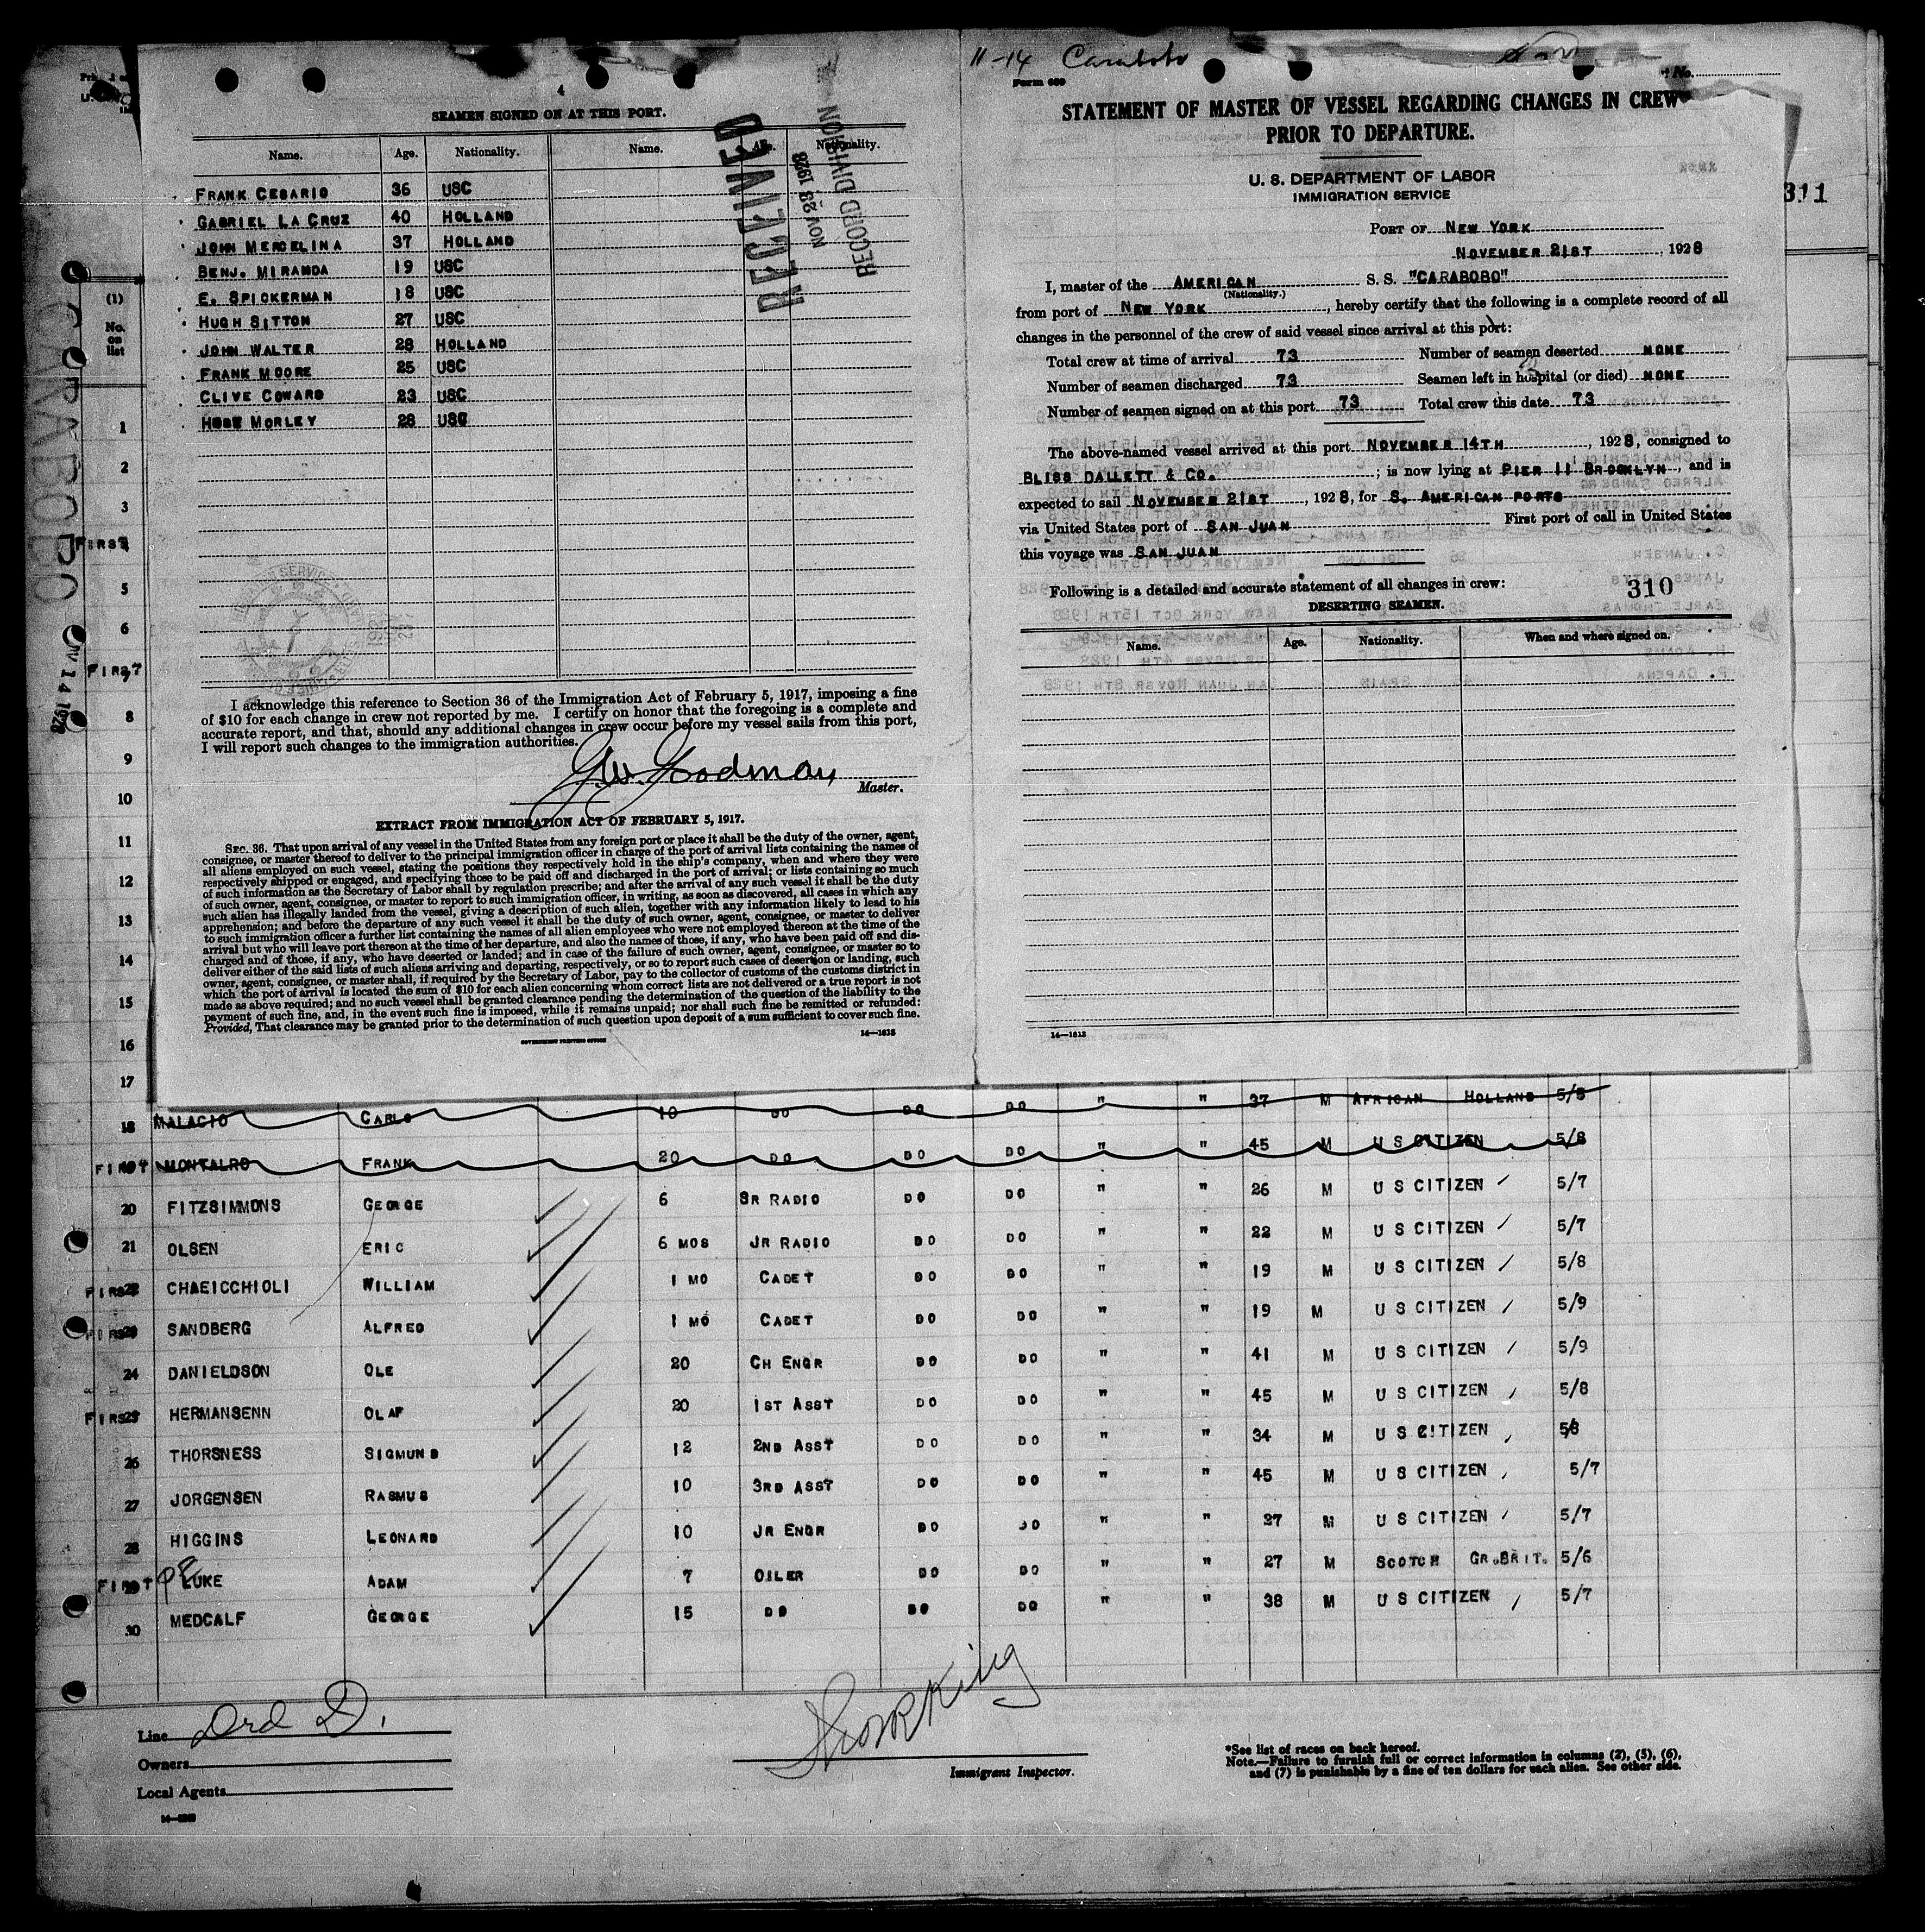 4
SEAMEN SIGNED ON AT THIS PORT.
Name. Age. Nationality. Name. Age. Nationality.
FRANK CESARIO 36 USC
GABRIEL LA CRUZ 40 HOLLAND
JOHN MERCELINA 37 HOLLAND
BENJ. MIRANDA 19 USC
E. SPICKERMAN 18 USC
HUGH SITTON 27 USC
JOHN WALTER 28 HOLLAND
FRANK MOORE 25 USC
CLIVE COWARD 23 USC
MORLEY 28 USC
RECEIVED
NOV 23 1928
RECORD DIVISION
I acknowledge this reference to Section 36 of the Immigration Act of February 5, 1917, imposing a fine
of $10 for each change in crew not reported by me. I certify on honor that the foregoing is a complete and
accurate report, and that, should any additional changes in crew occur before my vessel sails from this port,
I will report such changes to the immigration authorities.
G.W. Goodman
Master.
EXTRACT FROM IMMIGRATION ACT OF FEBRUARY 5, 1917.
SEC. 36. That upon arrival of any vessel in the United States from any foreign port or place it shall be the duty of the owner, agent,
consignee, or master thereof to deliver to the principal immigration officer in charge of the port of arrival lists containing the names of
all aliens employed on such vessel, stating the positions they respectively hold in the ship's company, when and where they were
respectively shipped or engaged, and specifying those to be paid off and discharged in the port of arrival; or lists containing so much
of such information as the Secretary of Labor shall by regulation prescribe; and after the arrival of any such vessel it shall be the duty
of such owner, agent, consignee, or master to report to such immigration officer, in writing, as soon as discovered, all cases in which any
such alien has illegally landed from the vessel, giving a description of such alien, together with any information likely to lead to his
apprehension; and before the departure of any such vessel it shall be the duty of such owner, agent, consignee, or master to deliver
to such immigration officer a further list containing the names of all alien employees who were not employed thereon at the time of the
arrival but who will leave port thereon at the time of her departure, and also the names of those, if any, who have been paid off and dis-
charged and of those, if any, who have deserted or landed; and in case of the failure of such owner, agent, consignee, or master so to
deliver either of the said lists of such aliens arriving and departing, respectively, or so to report such cases of desertion or landing, such
owner, agent, consignee, or master shall, if required by the Secretary of Labor, pay to the collector of customs of the customs district in
which the port of arrival is located the sum of $10 for each alien concerning whom correct lists are not delivered or a true report is not
made as above required; and no such vessel shall be granted clearance pending the determination of the question of the liability to the
payment of such fine, and, in the event such fine is imposed, while it remains unpaid; nor shall such fine be remitted or refunded:
Provided, That clearance may be granted prior to the determination of such question upon deposit of a sum sufficient to cover such fine.
GOVERNMENT PRINTING OFFICE
14—1618
11-14 Carabobo
Form 689
No.
STATEMENT OF MASTER OF VESSEL REGARDING CHANGES IN CREW
PRIOR TO DEPARTURE.
U. S. DEPARTMENT OF LABOR
IMMIGRATION SERVICE
PORT OF NEW YORK
NOVEMBER 21ST, 1928
I, master of the AMERICAN S. S. "CARABOBO"
(Nationality.)
from port of NEW YORK, hereby certify that the following is a complete record of all
changes in the personnel of the crew of said vessel since arrival at this port:
Total crew at time of arrival 73 Number of seamen deserted NONE
Number of seamen discharged 73 Seamen left in hospital (or died) NONE
Number of seamen signed on at this port 73 Total crew this date 73
The above-named vessel arrived at this port NOVEMBER 14TH, 1928, consigned to
BLISS DALLETT & CO.; is now lying at PIER 11 BROOKLYN, and is
expected to sail NOVEMBER 21ST, 1928, for S. AMERICAN PORTS
via United States port of SAN JUAN First port of call in United States
this voyage was SAN JUAN
Following is a detailed and accurate statement of all changes in crew:
310
DESERTING SEAMEN.
Name. Age. Nationality. When and where signed on.
14—1618
311
CARABOBO
NOV 14 1928
(1)
No.
on
list
1
2
3
FIRST 4
5
6
FIRST 7
8
9
10
11
12
13
14
15
16
17
18 MALACIO CARLO 10 DO DO DO " " 37 M AFRICAN HOLLAND 5/5
FIRST 19 MONTALRO FRANK 20 DO DO DO " " 45 M U S CITIZEN 5/8
20 FITZSIMMONS GEORGE 6 SR RADIO DO DO " " 26 M U S CITIZEN 5/7
21 OLSEN ERIC 6 MOS JR RADIO DO DO " " 22 M U S CITIZEN 5/7
FIRST 22 CHAEICCHIOLI WILLIAM 1 MO CADET DO DO " " 19 M U S CITIZEN 5/8
FIRST 23 SANDBERG ALFRED 1 MO CADET DO DO " " 19 M U S CITIZEN 5/9
24 DANIELDSON OLE 20 CH ENGR DO DO " " 41 M U S CITIZEN 5/9
FIRST 25 HERMANSENN OLAF 20 1ST ASST DO DO " " 45 M U S CITIZEN 5/8
26 THORSNESS SIGMUND 12 2ND ASST DO DO " " 34 M U S CITIZEN 5/8
27 JORGENSEN RASMUS 10 3RD ASST DO DO " " 45 M U S CITIZEN 5/7
28 HIGGINS LEONARD 10 JR ENGR DO DO " " 27 M U S CITIZEN 5/7
FIRST 29 LUKE ADAM 7 OILER DO DO " " 27 M SCOTCH GR.BRIT. 5/6
30 MEDCALF GEORGE 15 DO DO DO " " 38 M U S CITIZEN 5/7
Line Drd D.
Owners
Local Agents
Immigrant Inspector.
*See list of races on back hereof.
Note.—Failure to furnish full or correct information in columns (2), (5), (6),
and (7) is punishable by a fine of ten dollars for each alien. See other side.